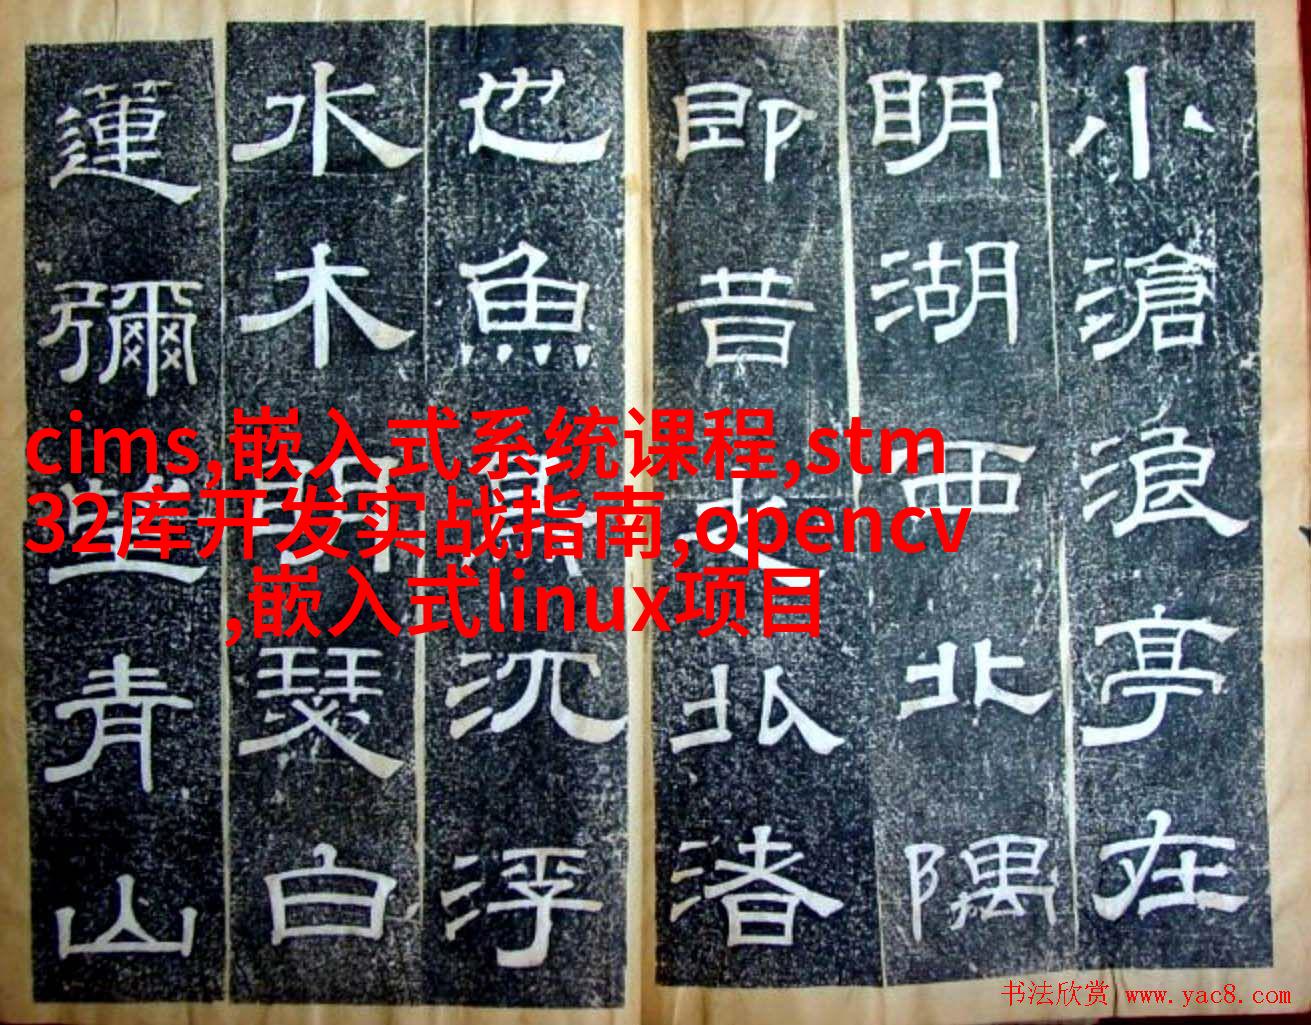 小滄浪亭在
明湖西北隅
即昔之北渚
也魚沉浮
水木瑟白
蓮彌青山
cims,嵌入式系统课程,stm
32库开发实战指南,opencv
,嵌入式linux项目
书法欣赏 www.yac8.com